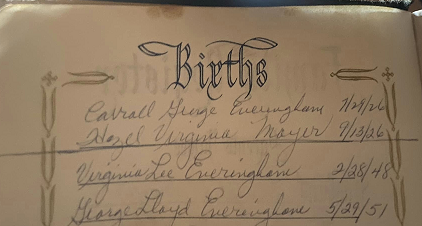 Births
Carroll George Everingham 7/29/26
Hazel Virginia Mayer 9/13/26
Virginia Lee Everingham 2/28/48
George Lloyd Everingham 5/29/51